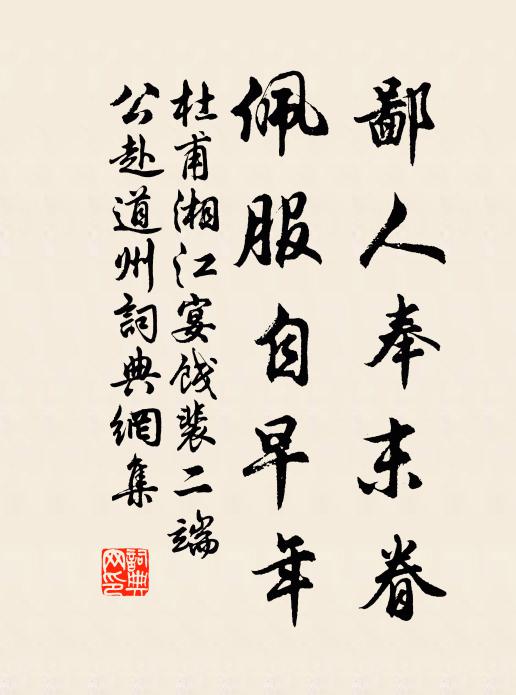 鄙人奉末眷
佩服自早年
杜甫湘江宴餞裴二端
公赴道州詞典網集
詞典網印